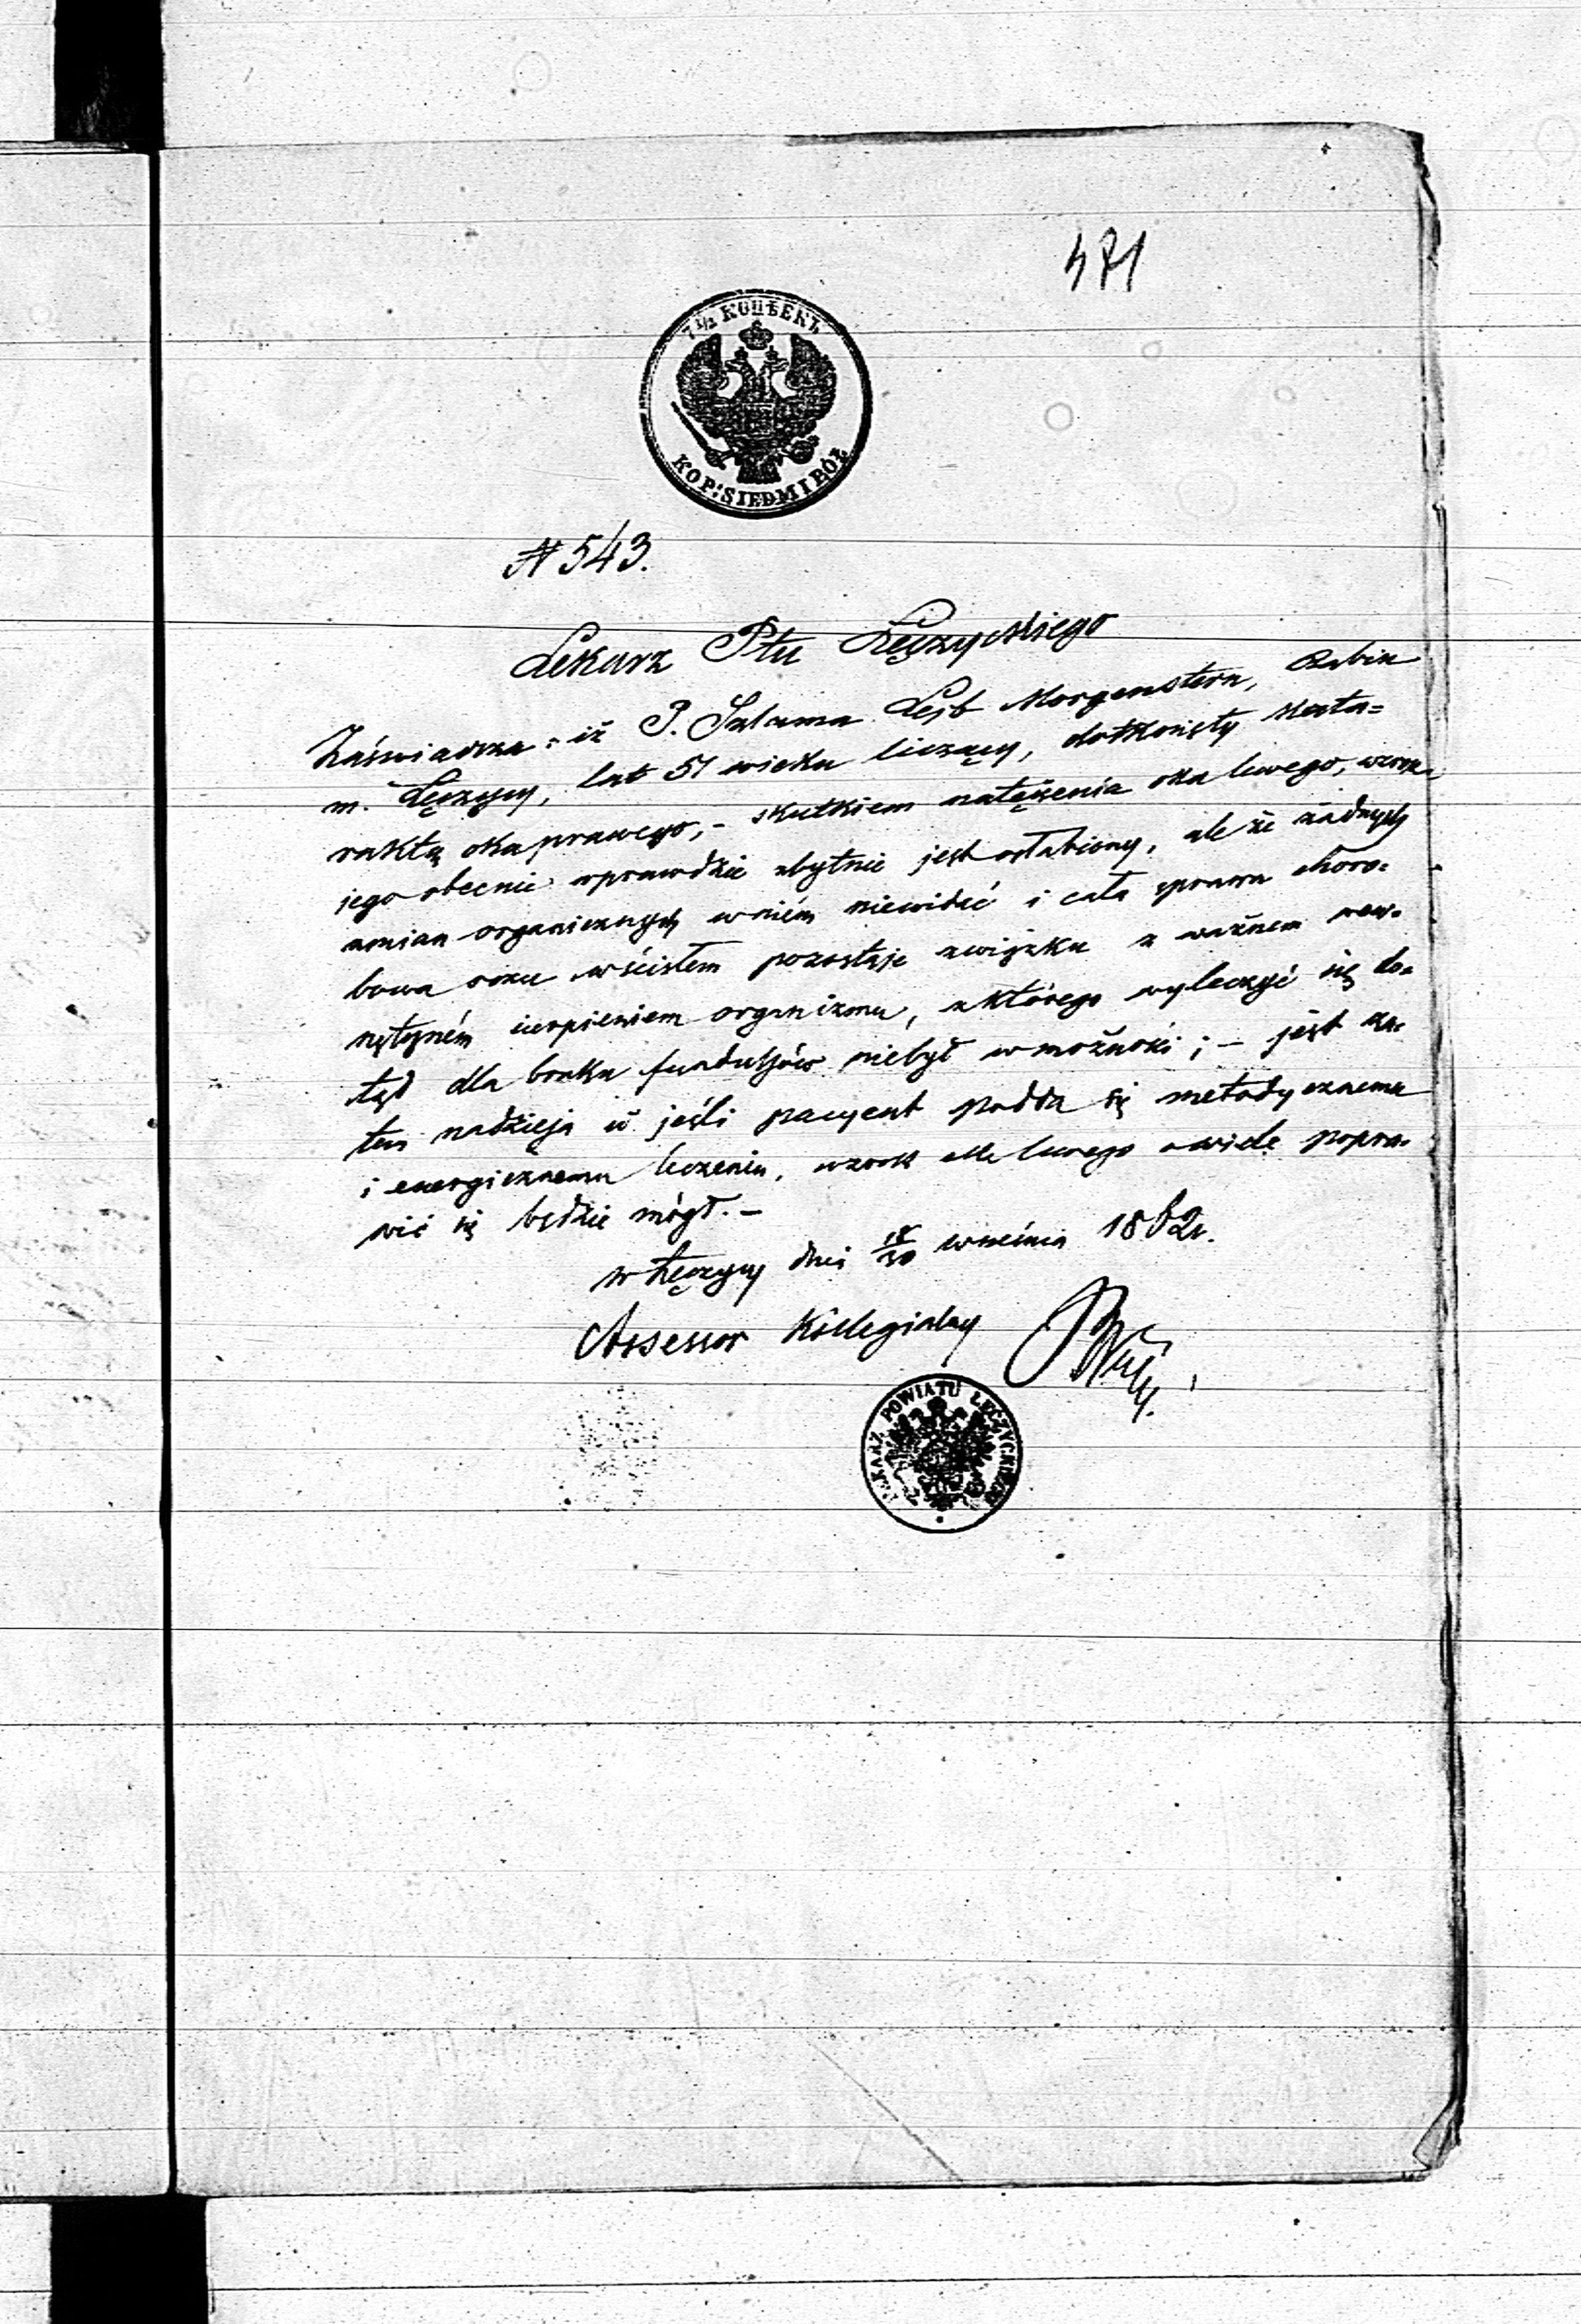 471
7 1/2 КОПѢЕКЪ
KOP: SIEDM I PÓŁ
N 543.
Lekarz Ptu Łęczyckiego
Zaświadcza iż P. Salama Lejb Morgenstern, Rabin
m. Łęczycy, lat 51 wieku liczący, dotknięty kata=
raktą oka prawego, – skutkiem natężenia oka lewego, wzrok
jego obecnie wprawdzie zbytnie jest osłabiony, ale że żadnych
zmian organicznych w niém niewidać i cała sprawa choro=
bowa oczu w ścisłem pozostaje związku z ważnem wew=
nętrzném cierpieniem organizmu, z którego wyleczyć się do=
tąd dla braku funduszów niebył w możności; – jest za=
tem nadzieja iż jeśli pacyent podda się metodycznemu
i energicznemu leczeniu, wzrok oka lewego o wiele popra=
wić się będzie mógł. –
w Łęczycy dnia 18/30 września 1862 r.
Assessor Kollegialny
LEKARZ POWIATU ŁĘCZYCKIEGO